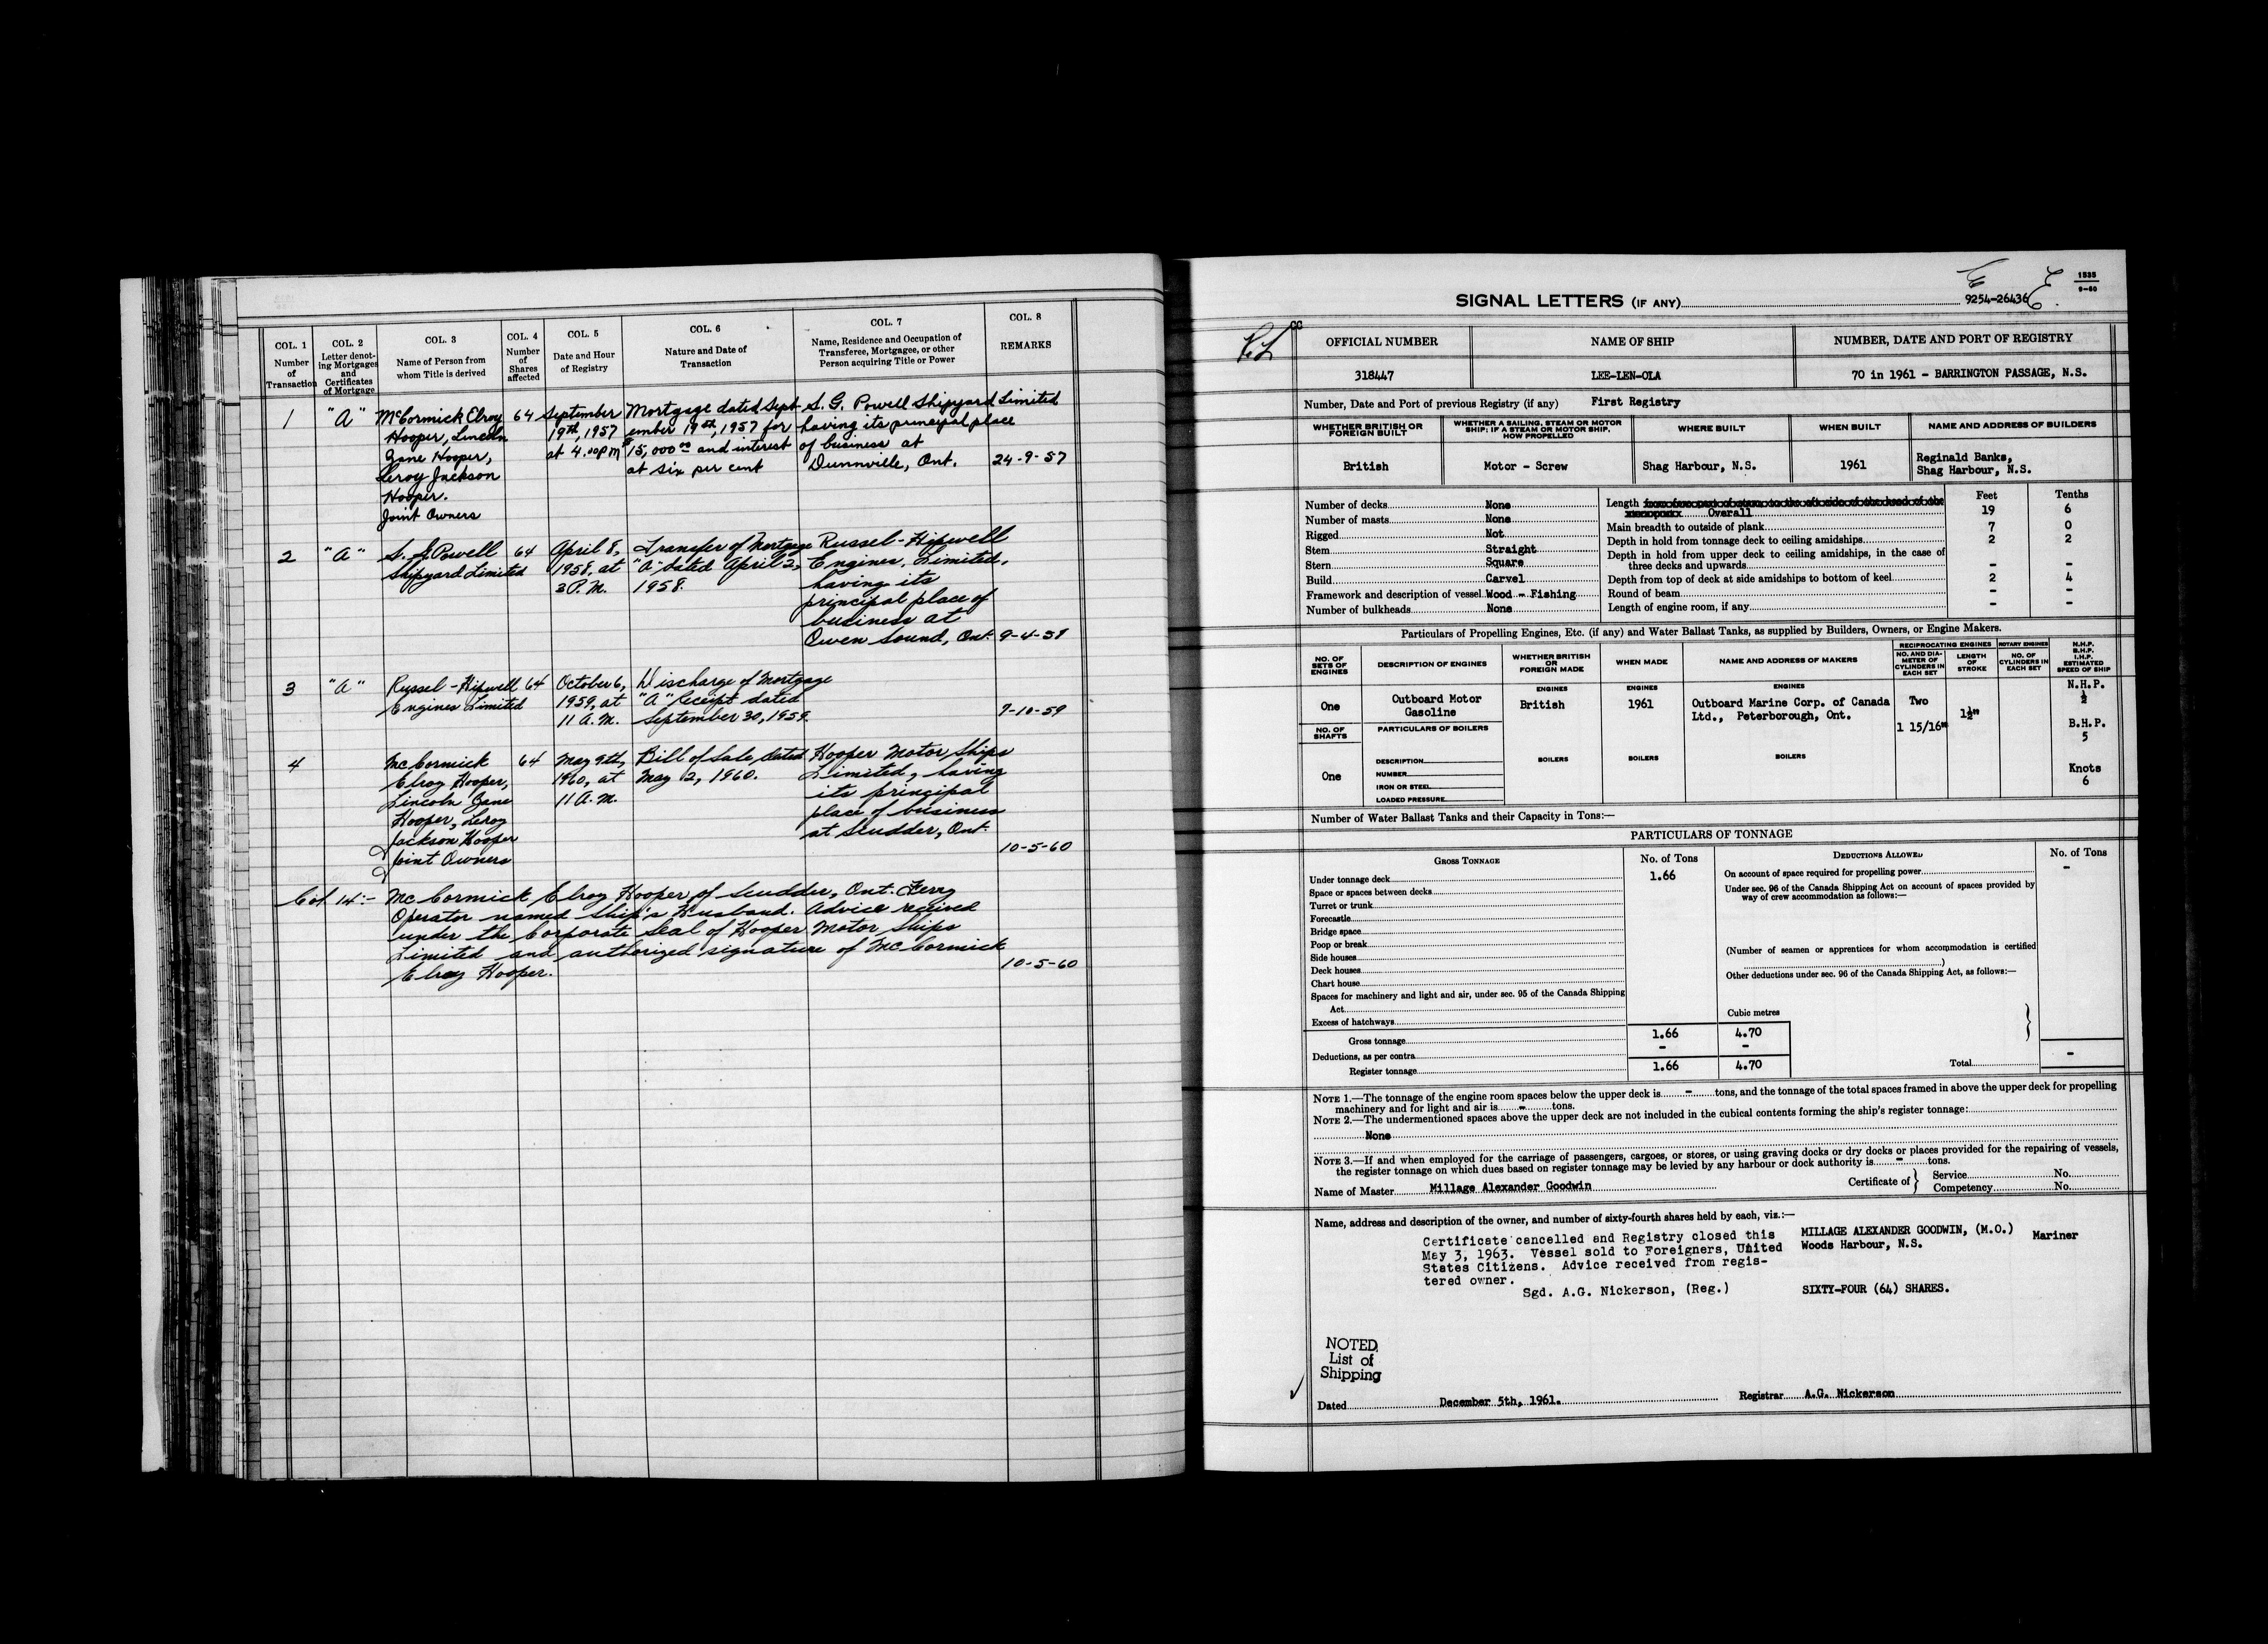 COL. 1
Number
of
Transaction
COL. 2
Letter denot-
ing Mortgages
and
Certificates
of Mortgage
COL. 3
Name of Person from
whom Title is derived
COL. 4
Number
of
Shares
affected
COL. 5
Date and Hour
of Registry
COL. 6
Nature and Date of
Transaction
COL. 7
Name, Residence and Occupation of
Transferee, Mortgagee, or other
Person acquiring Title or Power
COL. 8
REMARKS
1
"A"
McCormick Elroy
Hooper, Lincoln
Zane Hooper,
Leroy Jackson
Hooper.
Joint Owners
64
September
19th, 1957
at 4.00 PM
Mortgage dated Sept-
ember 19th, 1957 for
$15,000.00 and interest
at six per cent
S. G. Powell Shipyard Limited
having its principal place
of business at
Dunnville, Ont.
24-9-57
2
"A"
S. G. Powell
Shipyard Limited
64
April 8,
1958, at
3 P.M.
Transfer of Mortgage
"A" dated April 2,
1958.
Russel-Hipwell
Engines, Limited,
having its
principal place of
business at
Owen Sound, Ont.
9-4-58
3
"A"
Russel-Hipwell
Engines Limited
64
October 6,
1959, at
11 A.M.
Discharge of Mortgage
"A" receipt dated
September 30, 1959.
7-10-59
4
McCormick
Elroy Hooper,
Lincoln Zane
Hooper, Leroy
Jackson Hooper
Joint Owners
64
May 9th,
1960, at
11 A.M.
Bill of Sale, dated
May 2, 1960.
Hooper Motor Ships
Limited, having
its principal
place of business
at Scudder, Ont.
10-5-60
Col 14:- McCormick Elroy Hooper of Scudder, Ont. Ferry
Operator named Ship's Husband. Advice received
under the Corporate Seal of Hooper Motor Ships
Limited and authorized signature of McCormick
Elroy Hooper.
10-5-60
SIGNAL LETTERS (IF ANY)
9254-26436
1535
9-60
OFFICIAL NUMBER
NAME OF SHIP
NUMBER, DATE AND PORT OF REGISTRY
318447
LEE-LEN-OLA
70 in 1961 - BARRINGTON PASSAGE, N.S.
Number, Date and Port of previous Registry (if any) First Registry
WHETHER BRITISH OR
FOREIGN BUILT
WHETHER A SAILING, STEAM OR MOTOR
SHIP; IF A STEAM OR MOTOR SHIP,
HOW PROPELLED
WHERE BUILT
WHEN BUILT
NAME AND ADDRESS OF BUILDERS
British
Motor - Screw
Shag Harbour, N.S.
1961
Reginald Banks,
Shag Harbour, N.S.
Number of decks None
Number of masts None
Rigged Not
Stem Straight
Stern Square
Build Carvel
Framework and description of vessel Wood - Fishing
Number of bulkheads None
Feet
Tenths
Length from fore part of stem to the aft side of the head of the
Overall 19 6
Main breadth to outside of plank 7 0
Depth in hold from tonnage deck to ceiling amidships 2 2
Depth in hold from upper deck to ceiling amidships, in the case of
three decks and upwards - -
Depth from top of deck at side amidships to bottom of keel 2 4
Round of beam - -
Length of engine room, if any - -
Particulars of Propelling Engines, Etc. (if any) and Water Ballast Tanks, as supplied by Builders, Owners, or Engine Makers.
NO. OF
SETS OF
ENGINES
DESCRIPTION OF ENGINES
WHETHER BRITISH
OR
FOREIGN MADE
WHEN MADE
NAME AND ADDRESS OF MAKERS
RECIPROCATING ENGINES
NO. AND DIA-
METER OF
CYLINDERS IN
EACH SET
LENGTH
OF
STROKE
ROTARY ENGINES
NO. OF
CYLINDERS IN
EACH SET
N.H.P.
B.H.P.
I.H.P.
ESTIMATED
SPEED OF SHIP
One
Outboard Motor
Gasoline
ENGINES
British
ENGINES
1961
ENGINES
Outboard Marine Corp. of Canada
Ltd., Peterborough, Ont.
Two
1 15/16"
1½"
N.H.P.
½
B.H.P.
5
NO. OF
SHAFTS
PARTICULARS OF BOILERS
One
DESCRIPTION
NUMBER
IRON OR STEEL
LOADED PRESSURE
BOILERS
BOILERS
BOILERS
Knots
6
Number of Water Ballast Tanks and their Capacity in Tons:—
PARTICULARS OF TONNAGE
GROSS TONNAGE
No. of Tons
DEDUCTIONS ALLOWED
No. of Tons
Under tonnage deck 1.66
Space or spaces between decks
Turret or trunk
Forecastle
Bridge space
Poop or break
Side houses
Deck houses
Chart house
Spaces for machinery and light and air, under sec. 95 of the Canada Shipping
Act
Excess of hatchways
Cubic metres
Gross tonnage 1.66 4.70
Deductions, as per contra - -
Register tonnage 1.66 4.70
On account of space required for propelling power -
Under sec. 96 of the Canada Shipping Act on account of spaces provided by
way of crew accommodation as follows:—
(Number of seamen or apprentices for whom accommodation is certified
)
Other deductions under sec. 96 of the Canada Shipping Act, as follows:—
Total -
NOTE 1.—The tonnage of the engine room spaces below the upper deck is - tons, and the tonnage of the total spaces framed in above the upper deck for propelling
machinery and for light and air is - tons.
NOTE 2.—The undermentioned spaces above the upper deck are not included in the cubical contents forming the ship's register tonnage:
None
NOTE 3.—If and when employed for the carriage of passengers, cargoes, or stores, or using graving docks or dry docks or places provided for the repairing of vessels,
the register tonnage on which dues based on register tonnage may be levied by any harbour or dock authority is - tons.
Name of Master Millage Alexander Goodwin
Certificate of
Service No.
Competency No.
Name, address and description of the owner, and number of sixty-fourth shares held by each, viz.:—
Certificate cancelled and Registry closed this
May 3, 1963. Vessel sold to Foreigners, United
States Citizens. Advice received from regis-
tered owner.
Sgd. A.G. Nickerson, (Reg.)
MILLAGE ALEXANDER GOODWIN, (M.O.) Mariner
Woods Harbour, N.S.
SIXTY-FOUR (64) SHARES.
NOTED
List of
Shipping
Dated December 5th, 1961.
Registrar A.G. Nickerson